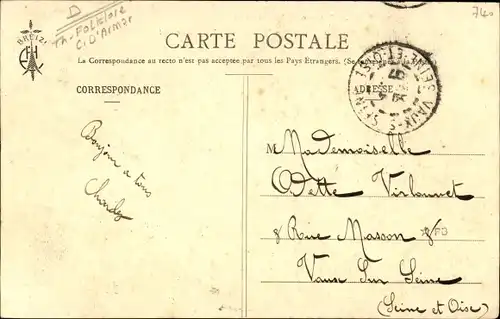 D
Th-Folklore
C. D'Armor
740
BREIZ
CARTE POSTALE
La Correspondance au recto n'est pas acceptée par tous les Pays Etrangers. (Se
CORRESPONDANCE
ADRESSE
VAUX-S-SEINE
SEINE-ET-OISE
Bonjour a tous
Charles
Mademoiselle
Odette Virlouvet
8 Rue Masson 8
Vaux Sur Seine
(Seine et Oise)